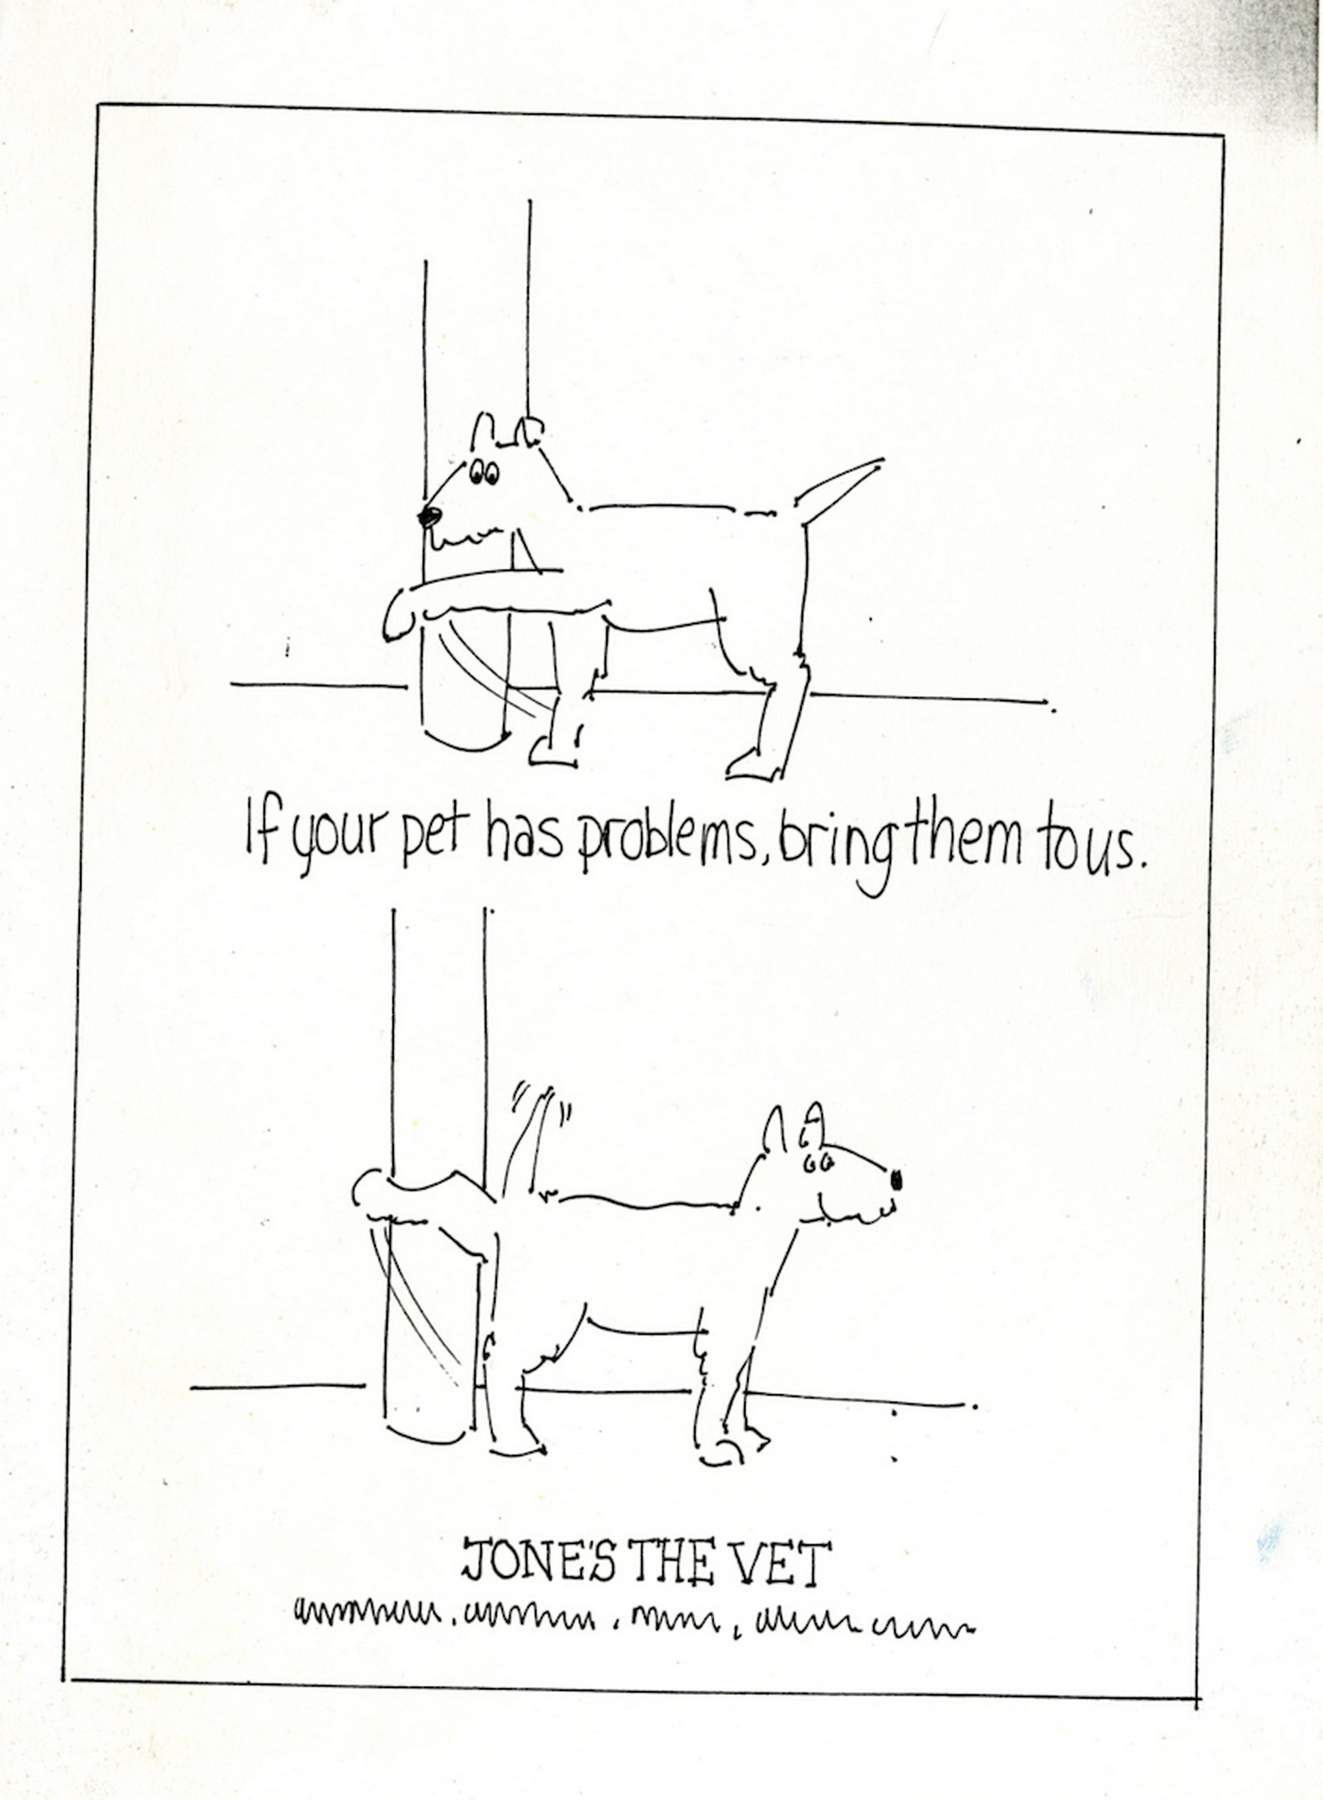 If your pet has problems, bring them to us.
JONE'S THE VET